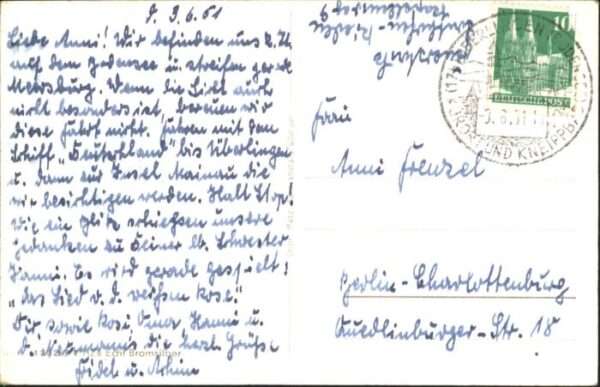 d. 3.6.51
Liebe Anni! Wir befinden uns z. Zt.
auf dem Bodensee u. streifen gerade
Meersburg. Wenn die Sicht auch
nicht besonders ist, bereuen wir
diese Fahrt nicht. Fahren mit dem
Schiff „Deutschland“ bis Überlingen
u. dann zur Insel Mainau die
wir besichtigen werden. Halt Stop!
Wie ein Blitz erschienen unsere
Gedanken zu Deiner lb. Schwester
Hanni. Es wird gerade gespielt:
„Das Lied v. d. weißen Rose.“
Dir sowie Rosi, Oma, Hanni u.
die herzl. Grüße
Echt Bromsilber
Frau
Anni Frenzel
Berlin-Charlottenburg
Quedlinburger-Str. 18
10
DEUTSCHE POST
UND KNEIPP